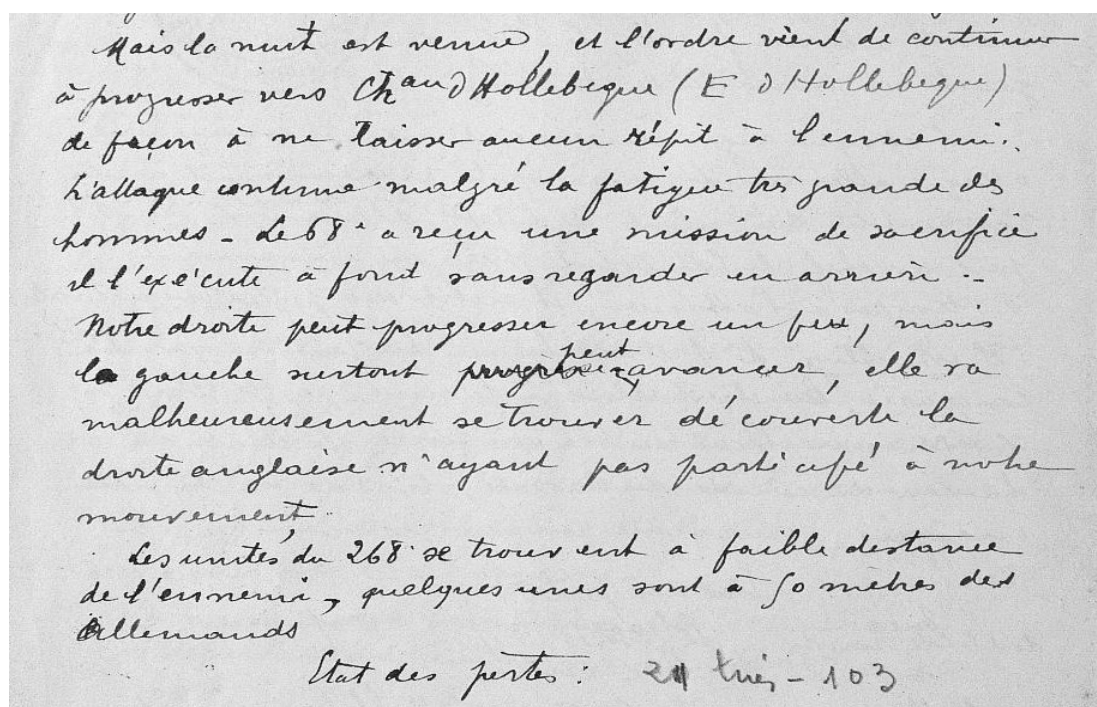 Mais la nuit est venue, et l'ordre vient de continuer
à progresser vers Chau d Hollebeque (E d Hollebeque)
de façon à ne laisser aucun répit à l'ennemi.
L'attaque continue malgré la fatigue très grande des
hommes - Le 68e a reçu une mission de sacrifice
il l'exécute à fond sans regarder en arrière -
Notre droite peut progresser encore un peu, mais
la gauche surtout peut avancer, elle va
malheureusement se trouver découverte la
droite anglaise n'ayant pas participé à notre
mouvement.
Les unités du 268e se trouvent à faible distance
de l'ennemi, quelques unes sont à 50 mètres des
Allemands
Etat des pertes : tués - 103